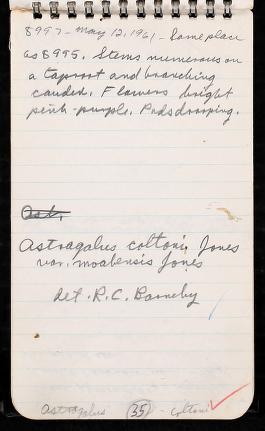 8997 - May 12, 1961 - Same place
as 8995. Stems numerous on
a taproot and branching
caudex. Flowers bright
pink-purple. Pods drooping.
Ast.
Astragalus coltoni Jones
var. moabensis Jones
det. R. C. Barneby
Astragalus 35 - coltoni